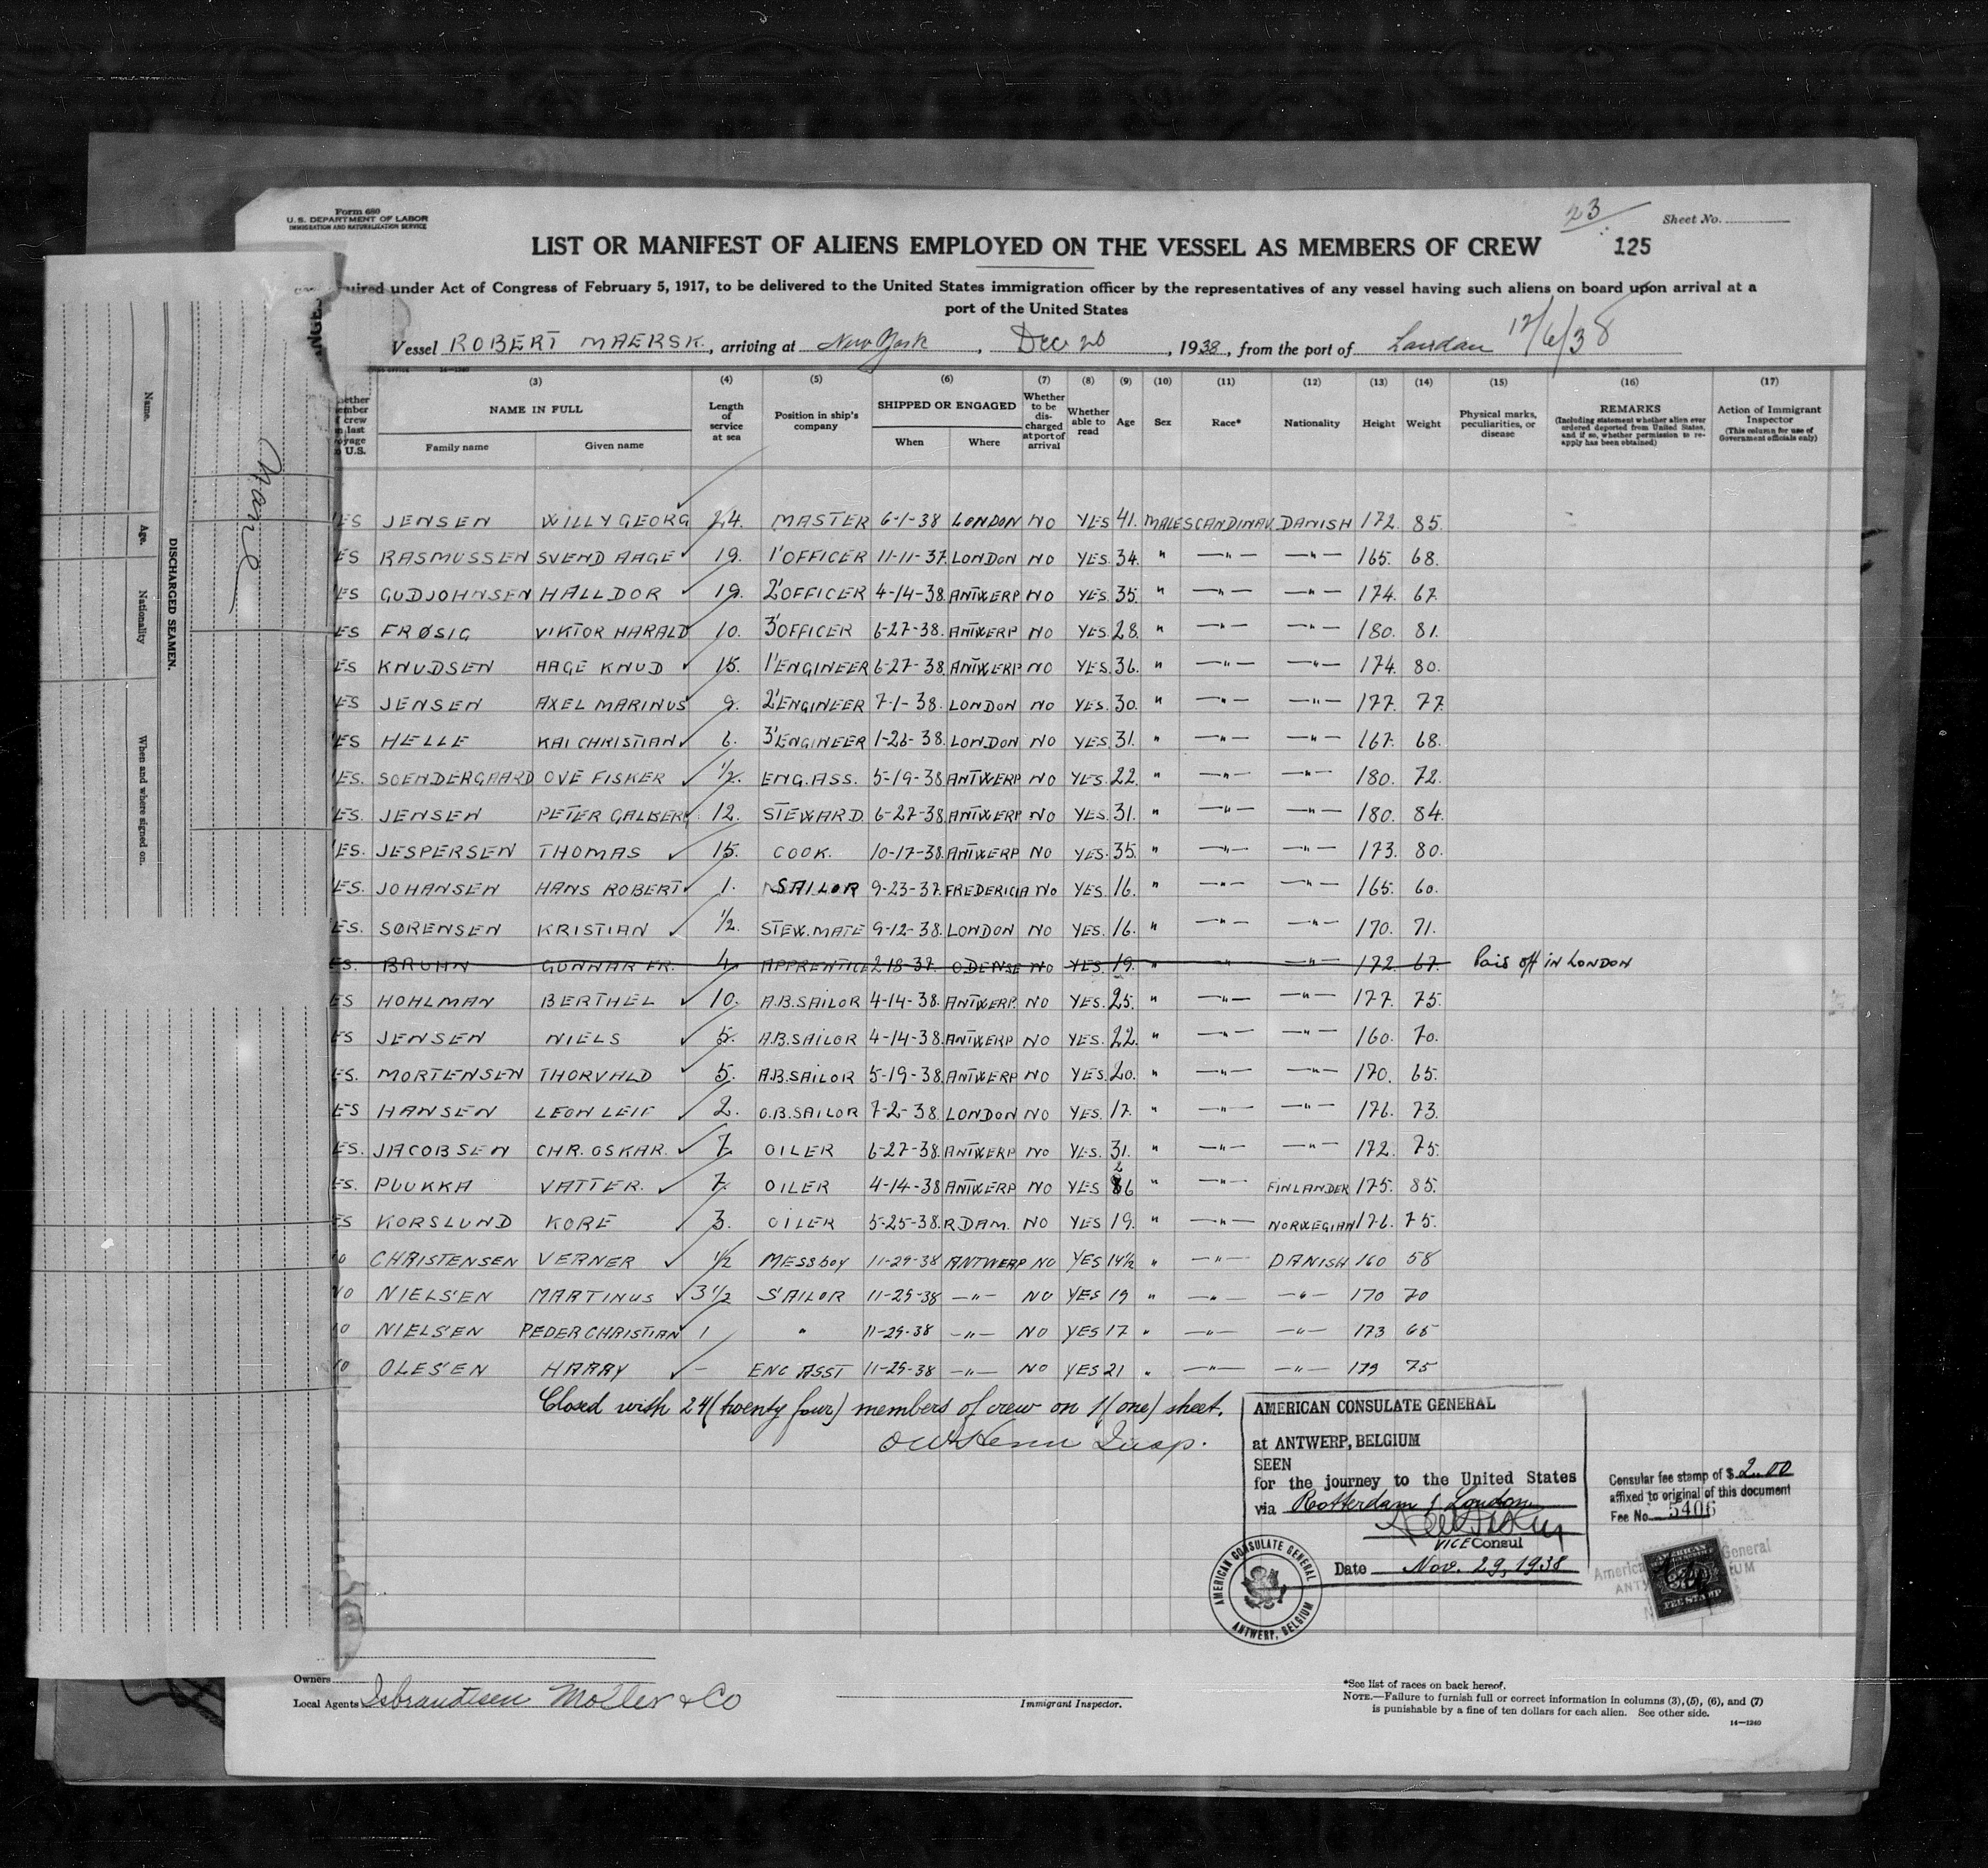 Form 680
U.S. DEPARTMENT OF LABOR
IMMIGRATION AND NATURALIZATION SERVICE
23
Sheet No.
LIST OR MANIFEST OF ALIENS EMPLOYED ON THE VESSEL AS MEMBERS OF CREW 125
under Act of Congress of February 5, 1917, to be delivered to the United States immigration officer by the representatives of any vessel having such aliens on board upon arrival at a
port of the United States
Vessel ROBERT MAERSK, arriving at New York, Dec 20, 1938, from the port of London 12/6/38
(3) (4) (5) (6) (7) (8) (9) (10) (11) (12) (13) (14) (15) (16) (17)
NAME IN FULL
Family name Given name
Length of service at sea
Position in ship's company
SHIPPED OR ENGAGED
When Where
Whether to be discharged at port of arrival
Whether able to read
Age Sex Race* Nationality Height Weight
Physical marks, peculiarities, or disease
REMARKS
(Including statement whether alien ever ordered deported from United States, and if so, whether permission to reapply has been obtained)
Action of Immigrant Inspector
(This column for use of Government officials only)
ES JENSEN WILLY GEORG 24. MASTER 6-1-38 LONDON NO YES 41. MALE SCANDINAV. DANISH 172. 85.
ES RASMUSSEN SVEND AAGE 19. 1'OFFICER 11-11-37. LONDON NO YES. 34. " —"— —"— 165. 68.
ES GUDJOHNSEN HALLDOR 19. 2'OFFICER 4-14-38. ANTWERP NO YES. 35. " —"— —"— 174. 67.
ES FRØSIG VIKTOR HARALD 10. 3'OFFICER 6-27-38. ANTWERP NO YES. 28. " —"— —"— 180. 81.
ES KNUDSEN AAGE KNUD 15. 1'ENGINEER 6-27-38. ANTWERP NO YES. 36. " —"— —"— 174. 80.
ES JENSEN AXEL MARINUS 9. 2'ENGINEER 7-1-38. LONDON NO YES. 30. " —"— —"— 177. 77.
ES HELLE KAI CHRISTIAN 6. 3'ENGINEER 1-26-38. LONDON NO YES. 31. " —"— —"— 167. 68.
ES. SOENDERGAARD OVE FISKER 1/2. ENG.ASS. 5-19-38 ANTWERP NO YES. 22. " —"— —"— 180. 72.
ES. JENSEN PETER 12. STEWARD. 6-27-38. ANTWERP NO YES. 31. " —"— —"— 180. 84.
ES. JESPERSEN THOMAS 15. COOK. 10-17-38. ANTWERP NO YES. 35. " —"— —"— 173. 80.
ES. JOHANSEN HANS ROBERT 1. SAILOR 9-23-37. FREDERICIA NO YES. 16. " —"— —"— 165. 60.
ES. SØRENSEN KRISTIAN 1/2. STEW.MATE 9-12-38. LONDON NO YES. 16. " —"— —"— 170. 71.
ES. BRUHN GUNNAR FR. 4. APPRENTICE 2-18-37. ODENSE NO YES. 19. " " —"— 172. 67. Pais off IN LONDON
ES HOHLMAN BERTHEL 10. A.B.SAILOR 4-14-38. ANTWERP. NO YES. 25. " —"— —"— 177. 75.
ES JENSEN NIELS 5. A.B.SAILOR 4-14-38. ANTWERP NO YES. 22. " —"— —"— 160. 70.
ES. MORTENSEN THORVALD 5. A.B.SAILOR 5-19-38. ANTWERP NO YES. 20. " —"— —"— 170. 65.
ES HANSEN LEON LEIF 2. O.B.SAILOR 7-2-38. LONDON NO YES. 17. " —"— —"— 176. 73.
ES. JACOBSEN CHR. OSKAR. 7. OILER 6-27-38. ANTWERP NO YES. 31. " —"— —"— 172. 75.
ES. PUUKKA VATTER. 7. OILER 4-14-38 ANTWERP NO YES 26 " —"— FINLANDER 175. 85.
ES KORSLUND KORE 3. OILER 5-25-38. R.DAM. NO YES 19. " —"— NORWEGIAN 176. 75.
O CHRISTENSEN VERNER 1/2 MESSBOY 11-29-38 ANTWERP NO YES 14½ " —"— DANISH 160 58
NO NIELSEN MARTINUS 3½ SAILOR 11-29-38 —"— NO YES 19 " —"— —"— 170 70
O NIELSEN PEDER CHRISTIAN 1 " 11-29-38 —"— NO YES 17 " —"— —"— 173 65
O OLESEN HARRY — ENG ASST 11-29-38 —"— NO YES 21 " —"— —"— 179 75
Closed with 24 (twenty four) members of crew on 1 (one) sheet.
AMERICAN CONSULATE GENERAL
at ANTWERP, BELGIUM
SEEN
for the journey to the United States
via Rotterdam / London
VICE Consul
Date Nov. 29, 1938
AMERICAN CONSULATE GENERAL ANTWERP, BELGIUM
Consular fee stamp of $ 2.00
affixed to original of this document
Fee No. 5406
FEE STAMP
Owners
Local Agents Isbrandtsen Moller & Co
Immigrant Inspector.
*See list of races on back hereof.
NOTE.—Failure to furnish full or correct information in columns (3), (5), (6), and (7)
is punishable by a fine of ten dollars for each alien. See other side.
14—1240
DISCHARGED SEAMEN.
Name. Age. Nationality When and where signed on.
None